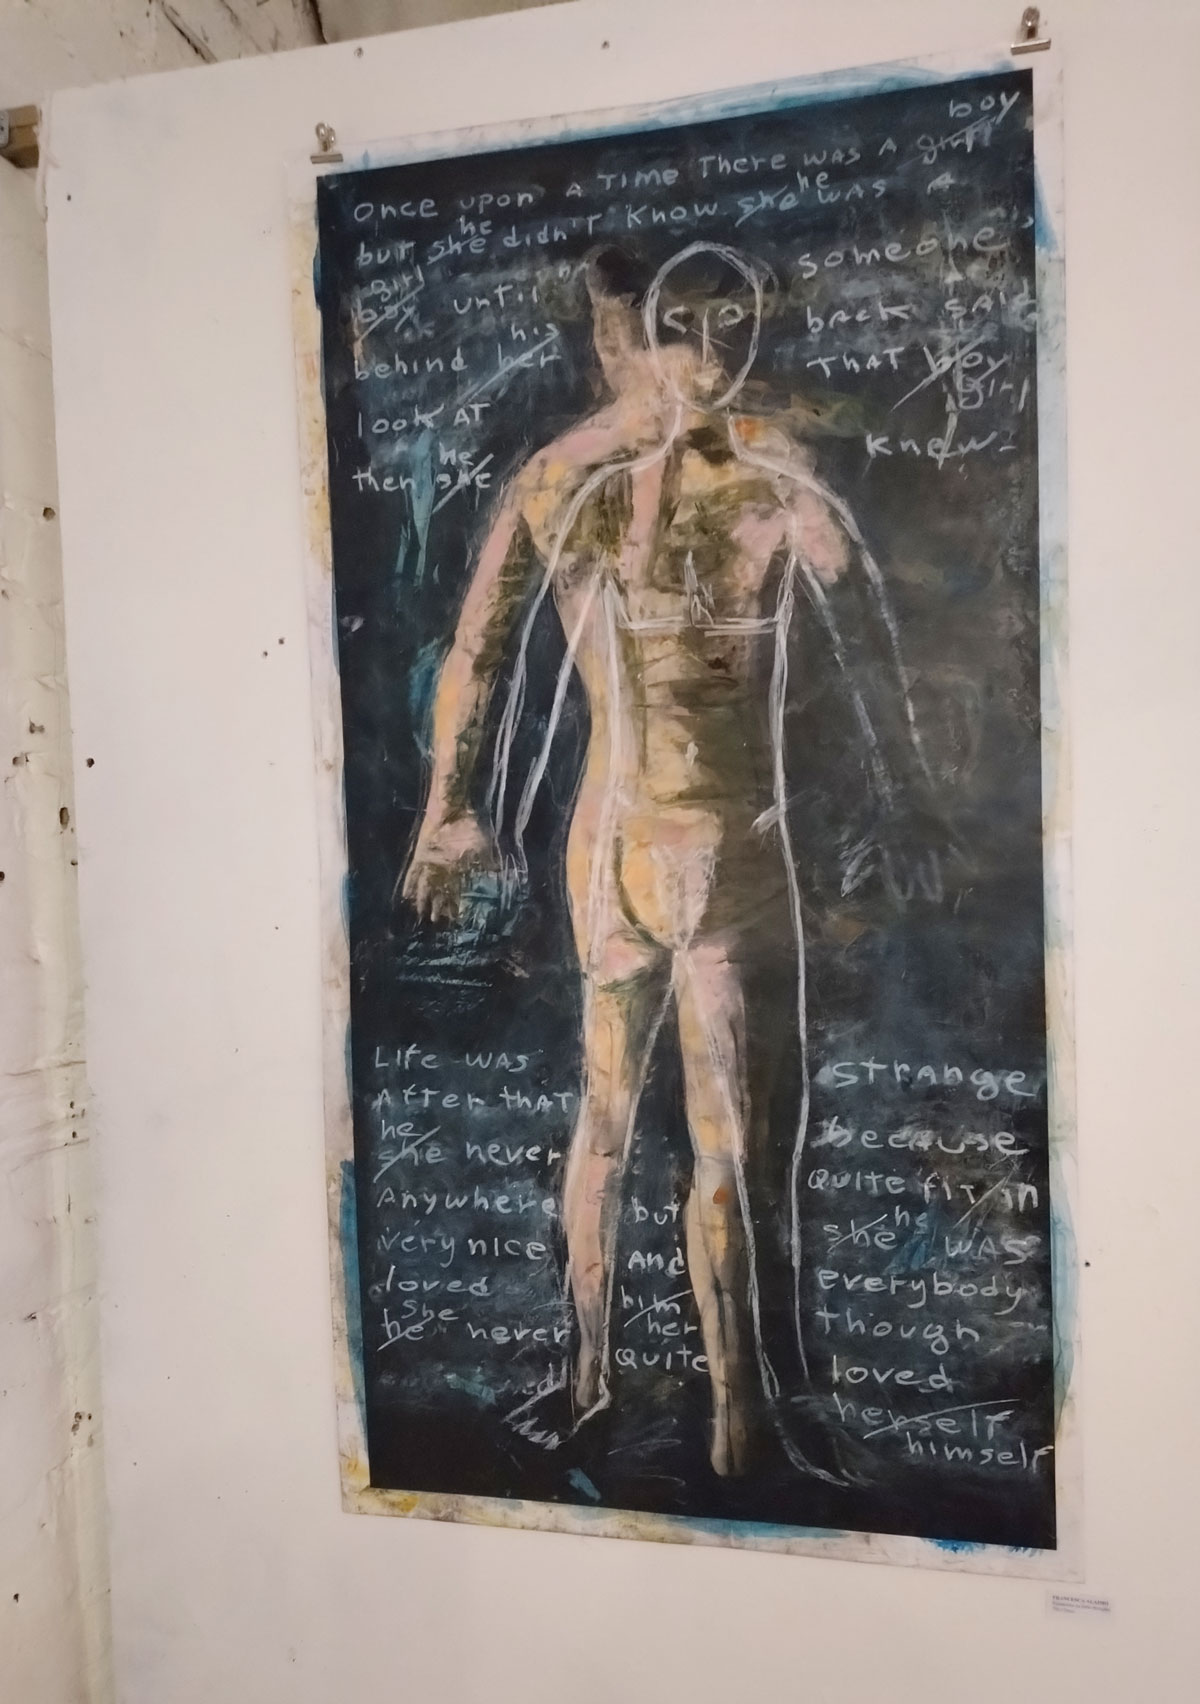 boy
Once upon A TIME There WAS A girl
he he
but she didn't know she WAS A
girl
boy until someone
his
behind her back SAID
look AT THAT boy
girl
he
then she knew
Life WAS STRANGE
After THAT because
he
she never QUITE fIT in
Anywhere but she he WAS
very nice And everybody
loved him though
her
she
he never QUITE loved
herself
himself